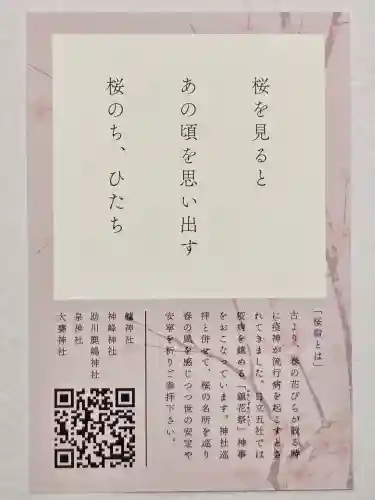 桜を見ると
あの頃を思い出す
桜のち、ひたち
「桜詣とは」
古より、春の花びらが散る時
に疫神が流行病を起こすとさ
れてきました。日立五社では
疫病を鎮める「鎮花祭」神事
をおこなっています。神社巡
拝と併せて、桜の名所を巡り
春の風を感じつつ世の安定や
安寧を祈りご参拝下さい。
神社
神峰神社
助川鹿嶋神社
泉神社
大甕神社